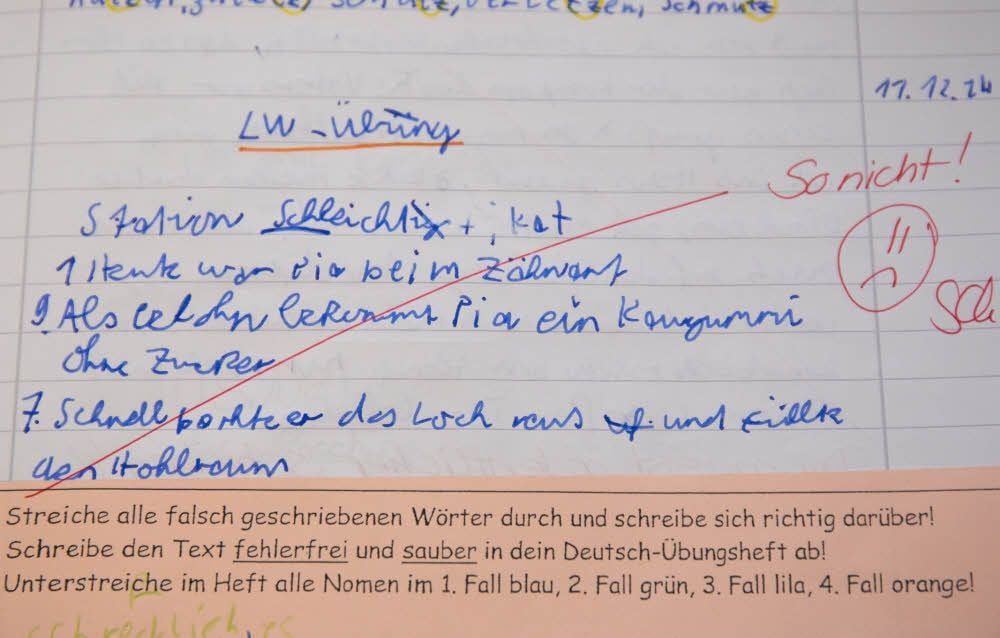 schmutz
17.12.24
LW-Übung
So nicht!
Station Schleichdi + ; kat
1 Heute war Pia beim Zahnarzt
9. Als Belohn bekommt Pia ein Kaugummi
ohne Zucker
Sch
7. Schnell bohrte er das Loch raus und füllte
den Hohlraum
Streiche alle falsch geschriebenen Wörter durch und schreibe sich richtig darüber!
Schreibe den Text fehlerfrei und sauber in dein Deutsch-Übungsheft ab!
Unterstreiche im Heft alle Nomen im 1. Fall blau, 2. Fall grün, 3. Fall lila, 4. Fall orange!
schrecklich, es